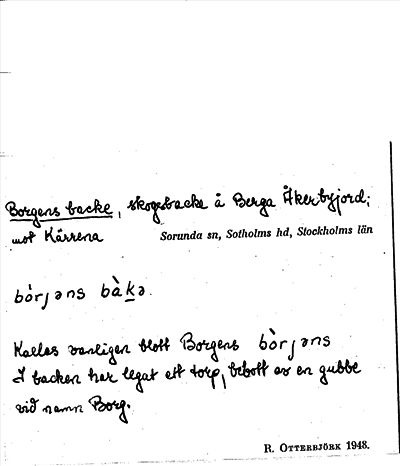 Borgens backe, skogsbacke å Berga Åkerbyjord;
mot Kärrena
Sorunda sn, Sotholms hd, Stockholms län
bòrjəns bàkə.
Kallas vanligen blott Borgens bòrjəns
I backen har legat ett torp, bebott av en gubbe
vid namn Borg.
R. OTTERBJÖRK 1948.